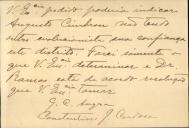 V. Exª pedido poderia indicar
Augusto
outro evolucionista sua confiança
este distrito. Farei sómente o
que V. Exª determinar e Dr.
Ramos está de acordo resolução
que V. Exª tomar
J. C.
Constantino J. Cardoso